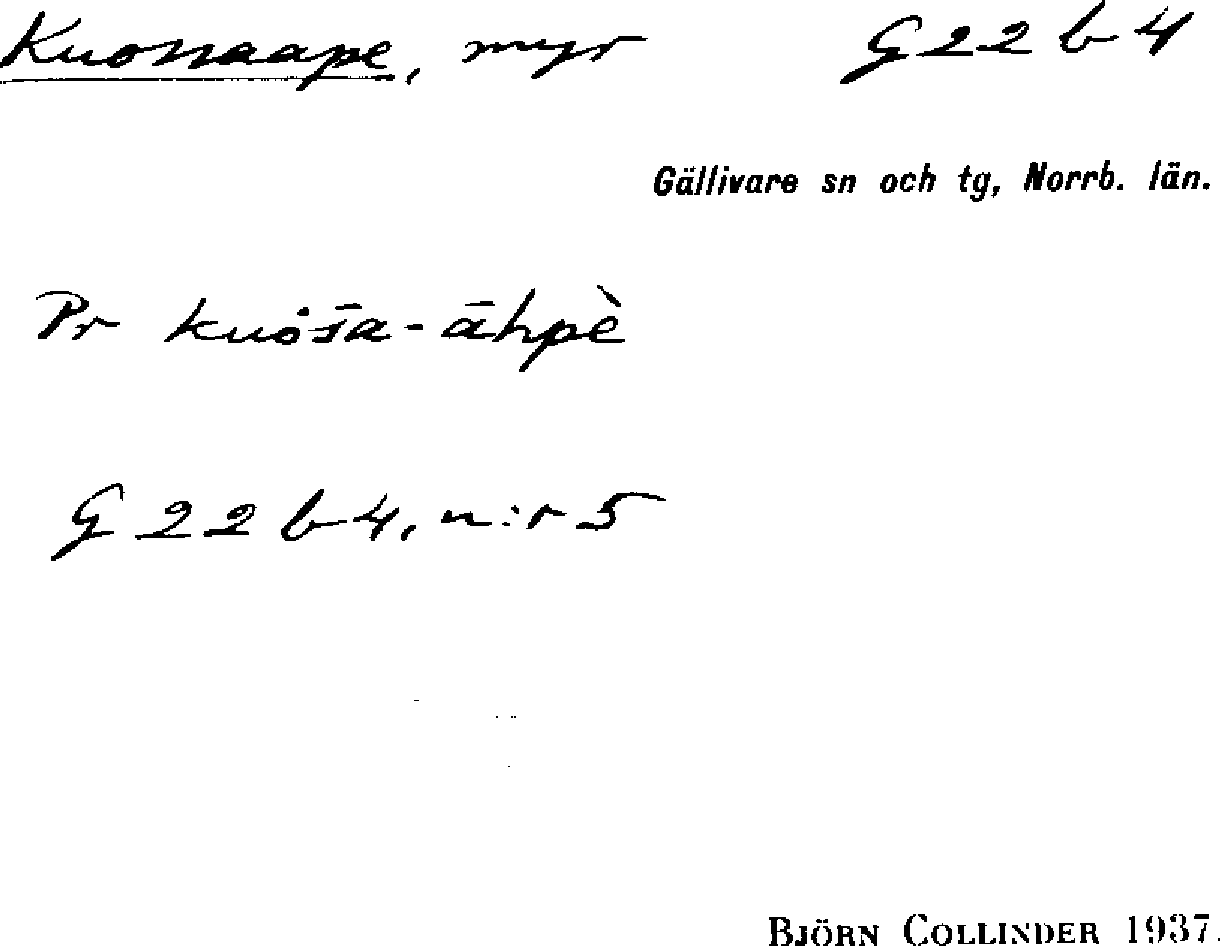 Kuossaape, myr G22 b 4
Gällivare sn och tg, Norrb. län.
Pr kuȯs̄a-āhpè
G 22 b 4, n:r 5
BJÖRN COLLINDER 1937.